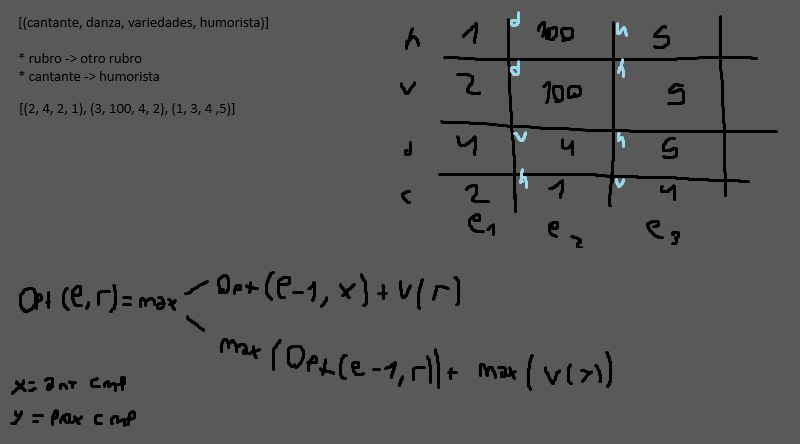 [(cantante, danza, variedades, humorista)]
* rubro -> otro rubro
* cantante -> humorista
[(2, 4, 2, 1), (3, 100, 4, 2), (1, 3, 4 ,5)]
h 1 d 100 h 5
v 2 d 100 h 5
d 4 v 4 h 5
c 2 h 1 v 4
e1 e2 e3
Opt (e, r) = max
Opt (e-1, x) + v(r)
max (Opt (e-1, r)) + max (v(y))
x = ant comp
y = prox comp